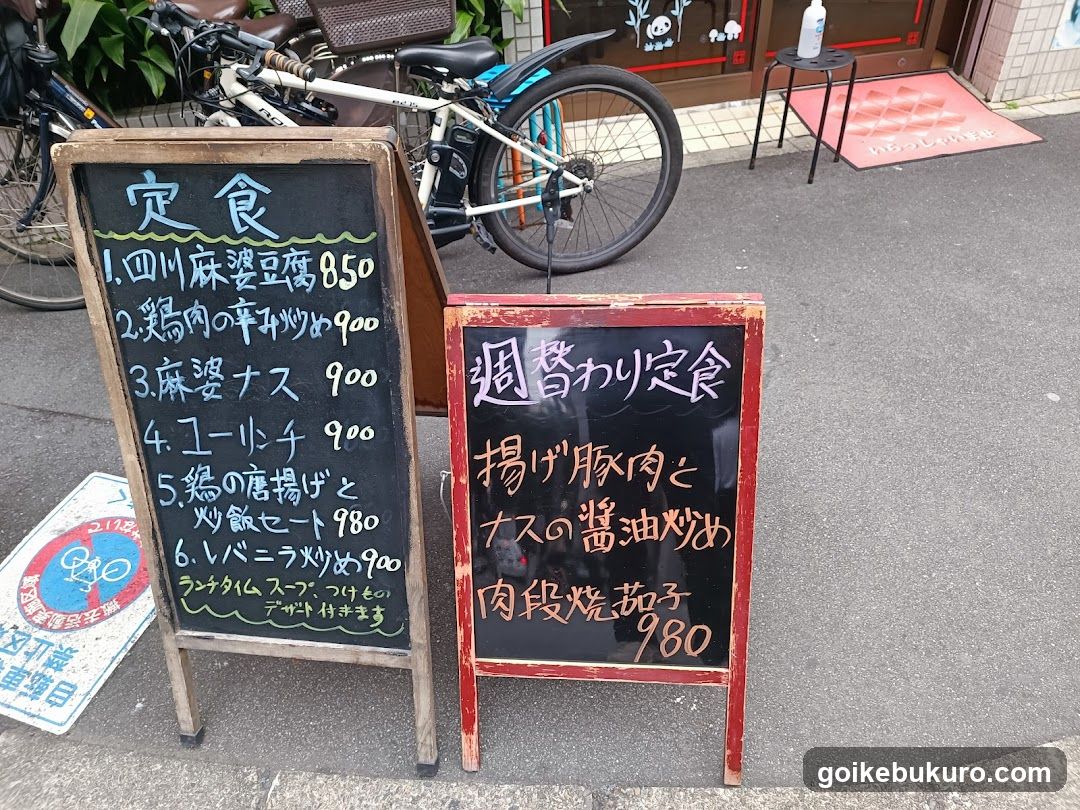 定食
1.四川麻婆豆腐850
2.鶏肉の辛み炒め900
3.麻婆ナス 900
4.ユーリンチ 900
5.鶏の唐揚げと
炒飯セート980
6.レバニラ炒め900
ランチタイム スープ、つけもの
デザート付きます
週替わり定食
揚げ豚肉と
ナスの醤油炒め
肉段焼茄子
980
いらっしゃいませ
自転車
禁止区
goikebukuro.com